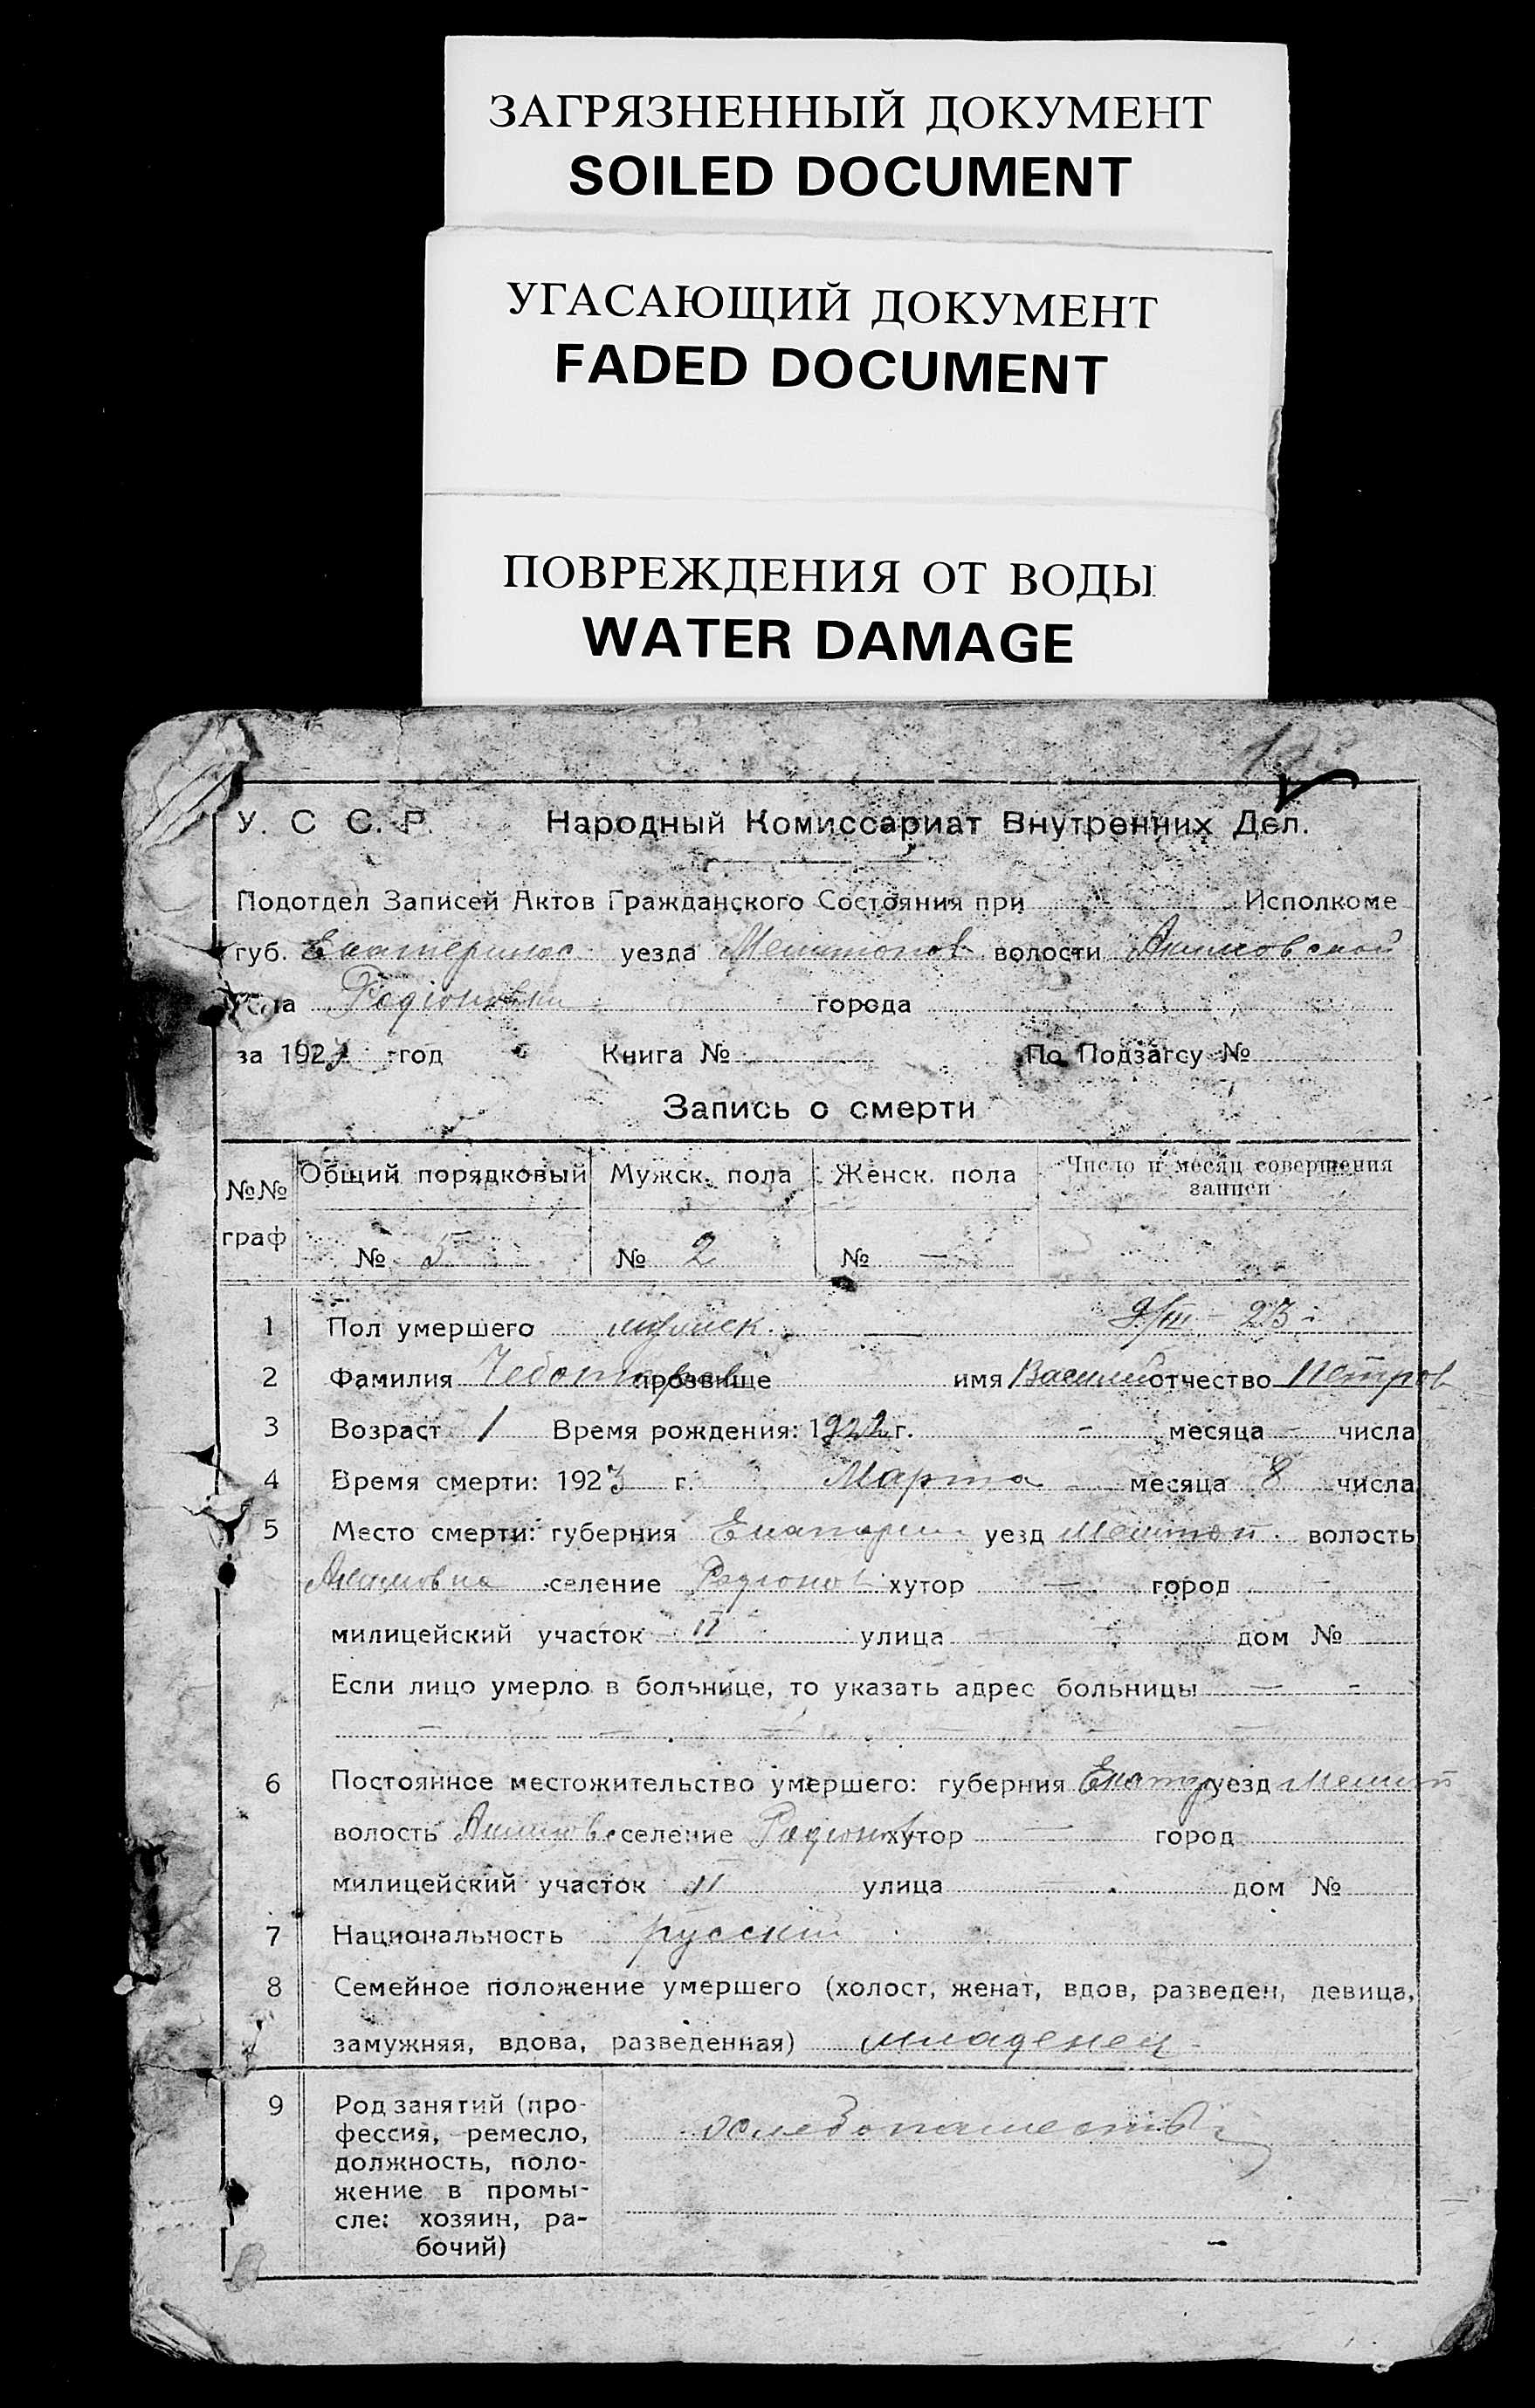 ЗАГРЯЗНЕННЫЙ ДОКУМЕНТ
SOILED DOCUMENT
УГАСАЮЩИЙ ДОКУМЕНТ
FADED DOCUMENT
ПОВРЕЖДЕНИЯ ОТ ВОДЫ
WATER DAMAGE
У. С С. Р. Народный Комиссариат Внутренних Дел.
Подотдел Записей Актов Гражданского Состояния при Исполкоме
губ. Екатеринос уезда Мелитопол волости Акимовской
Родіоновки города
за 1923 год Книга № По Подзагсу №
Запись о смерти
№№ граф Общий порядковый Мужск. пола Женск. пола Число и месяц совершения
записи
№ 5 № 2 № —
9/III – 23
1 Пол умершего мужск. —
2 Фамилия Чеботарев прозвище имя Василий отчество Петров
3 Возраст 1 Время рождения: 1922 г. - месяца - числа
4 Время смерти: 1923 г. Марта месяца 8 числа
5 Место смерти: губерния Екатерин уезд Мелитоп. волость
Акимовка селение Родіонов хутор — город —
милицейский участок II улица — дом №
Если лицо умерло в больнице, то указать адрес больницы — -
6 Постоянное местожительство умершего: губерния Екатер уезд Мелит
волость Акимов. селение Родіонов хутор — город
милицейский участок II улица — дом №
7 Национальность русскій
8 Семейное положение умершего (холост, женат, вдов, разведен, девица,
замужняя, вдова, разведенная) младенец
9 Род занятий (про-
фессия, ремесло,
должность, поло-
жение в промы-
сле: хозяин, ра-
бочий)
хлебопашество